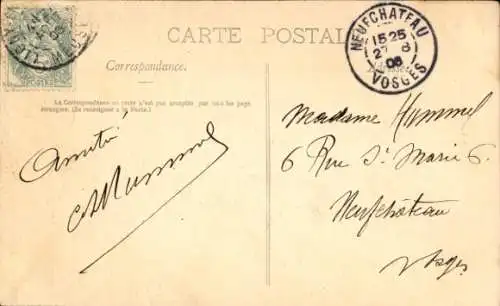 CARTE POSTALE
NEUFCHATEAU
15 25
27 - 8
06
VOSGES
Correspondance.
La Correspondance au recto n'est pas acceptée par tous les pays
étrangers. (Se renseigner à la Poste.)
Amitié
Madame Hummel
6 Rue St Marie 6
Neufchâteau
Vosges